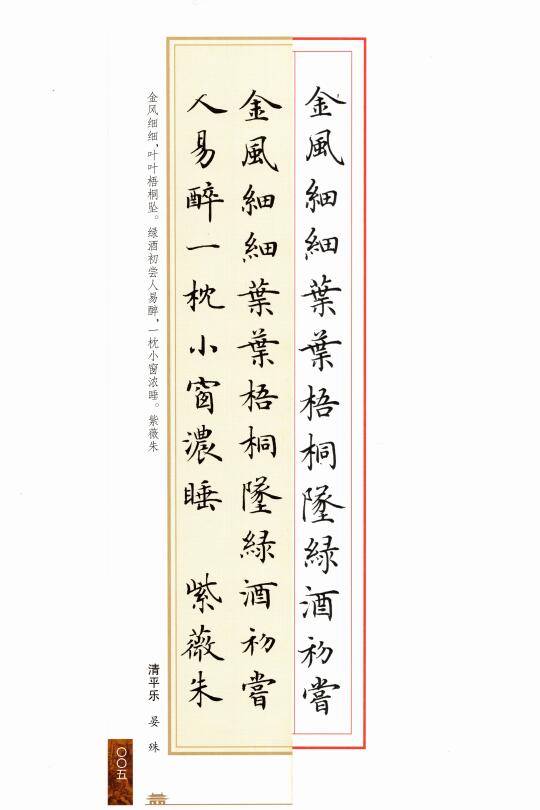 金風細細葉葉梧桐墜緑酒初嘗
金風細細葉葉梧桐墜緑酒初嘗
人易醉一枕小窗濃睡 紫薇朱
金风细细，叶叶梧桐坠。绿酒初尝人易醉，一枕小窗浓睡。紫薇朱
清平乐 晏殊
〇〇五